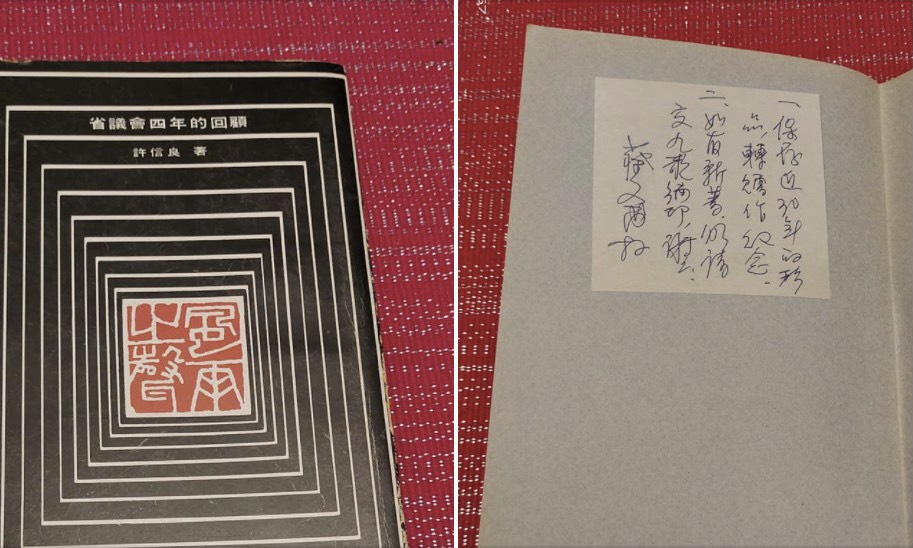 省議會四年的回顧
許信良 著
風雨
之聲
一、保存近30年的珍
品,轉贈作紀念.
二、如有新著,仍請
交九歌編印,謝謝.
蔡文甫